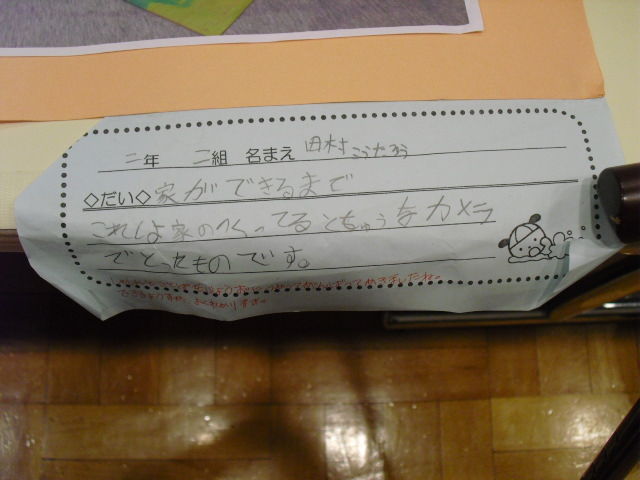 二年 二組 名まえ 田村こうたろう
◇だい◇ 家ができるまで
これしよ家のつくってるとちゅうをカメラ
でとったものです。
よくわかります。